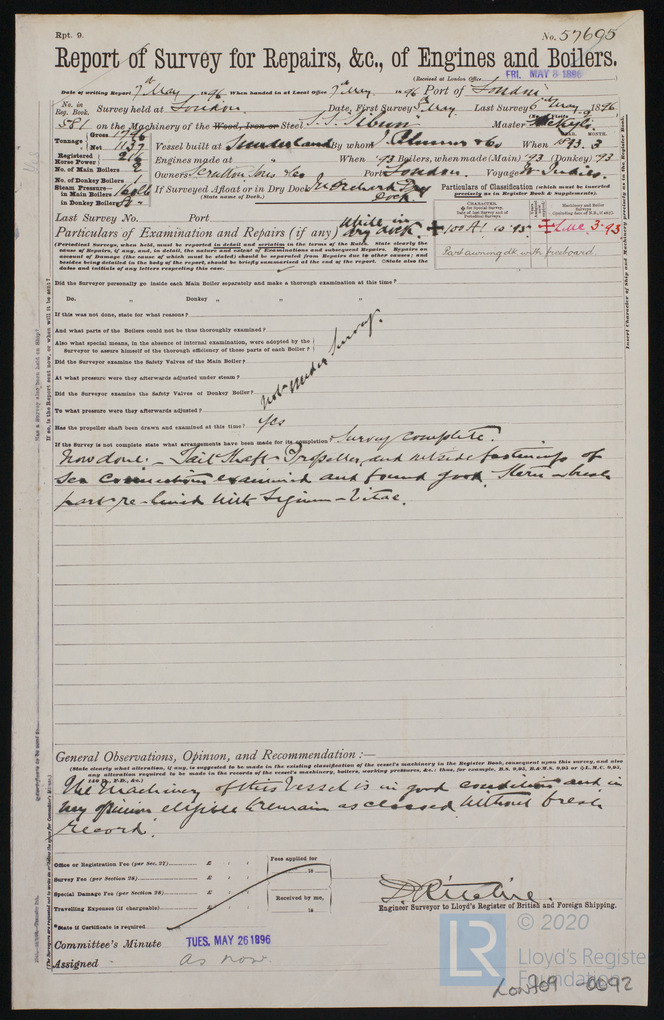 Rpt. 9.
No. 57695
Report of Survey for Repairs, &c., of Engines and Boilers.
(Received at London Office FRI. MAY 8 1896
Date of writing Report 7th May 1896 When handed in at Local Office 7th May 1896 Port of London
No. in Reg. Book. Survey held at London Date, First Survey 5th May Last Survey 6th May 1896
581 on the Machinery of the Wood, Iron or Steel S.S. Tibun Master
Tonnage Gross 1746 Net 1137 Vessel built at Sunderland By whom When 1893. 3
Registered Horse Power 216 Engines made at " When '93 Boilers, when made (Main) '93 (Donkey) '93
No. of Main Boilers 2 Owners Scrutton Sons & Co Port London. Voyage W. Indies.
No. of Donkey Boilers 1
Steam Pressure— in Main Boilers 160 lb If Surveyed Afloat or in Dry Dock In Orchard Dry Dock.
(State name of Dock.)
in Donkey Boilers
Particulars of Classification (which must be inserted precisely as in Register Book & Supplements).
Last Survey No. Port
Particulars of Examination and Repairs (if any) while in dry dock
✠ 100 A1 10.95 ✠ L.M.C. 3.93
Part awning dk with freeboard
(Periodical Surveys, when held, must be reported in detail and seriatim in the terms of the Rules. State clearly the
cause of Repairs, if any, and, in detail, the nature and extent of Examinations and subsequent Repairs. Repairs on
account of Damage (the cause of which must be stated) should be separated from Repairs due to other causes; and
besides being detailed in the body of the report, should be briefly summarised at the end of the report. State also the
dates and initials of any letters respecting this case.
Did the Surveyor personally go inside each Main Boiler separately and make a thorough examination at this time?
Do. " Donkey " " "
If this was not done, state for what reasons?
And what parts of the Boilers could not be thus thoroughly examined?
Also what special means, in the absence of internal examination, were adopted by the
Surveyor to assure himself of the thorough efficiency of those parts of each Boiler?
Did the Surveyor examine the Safety Valves of the Main Boiler?
At what pressure were they afterwards adjusted under steam?
Did the Surveyor examine the Safety Valves of Donkey Boiler?
To what pressure were they afterwards adjusted?
not under Survey.
Has the propeller shaft been drawn and examined at this time? yes
If the Survey is not complete state what arrangements have been made for its completion Survey complete.
Now done:- Tail Shaft, Propeller, and outside fastenings of
sea connections examined and found good. Stern-bush
part re-lined with Lignum-Vitae.
General Observations, Opinion, and Recommendation:—
(State clearly what alteration, if any, is suggested to be made in the existing classification of the vessel's machinery in the Register Book, consequent upon this survey, and also
any alteration required to be made in the records of the vessel's machinery, boilers, working pressures, &c.; thus, for example, B.S. 9,95, B.&M.S. 9,95 or ✠L.M.C. 9,95,
140 lb., F.D., &c.)
The Machinery of this Vessel is in good condition and in
my opinion eligible to remain as classed without fresh
record.
Office or Registration Fee (per Sec. 27) £ : :
Survey Fee (per Section 28) £ : :
Special Damage Fee (per Section 28) £ : :
Travelling Expenses (if chargeable) £ : :
Fees applied for
18
Received by me,
18
*State if Certificate is required
D. Ritchie.
Engineer Surveyor to Lloyd's Register of British and Foreign Shipping.
Committee's Minute TUES. MAY 26 1896
Assigned as now.
© 2020
LR
Lloyd's Register
Foundation
Lon709 - 0092